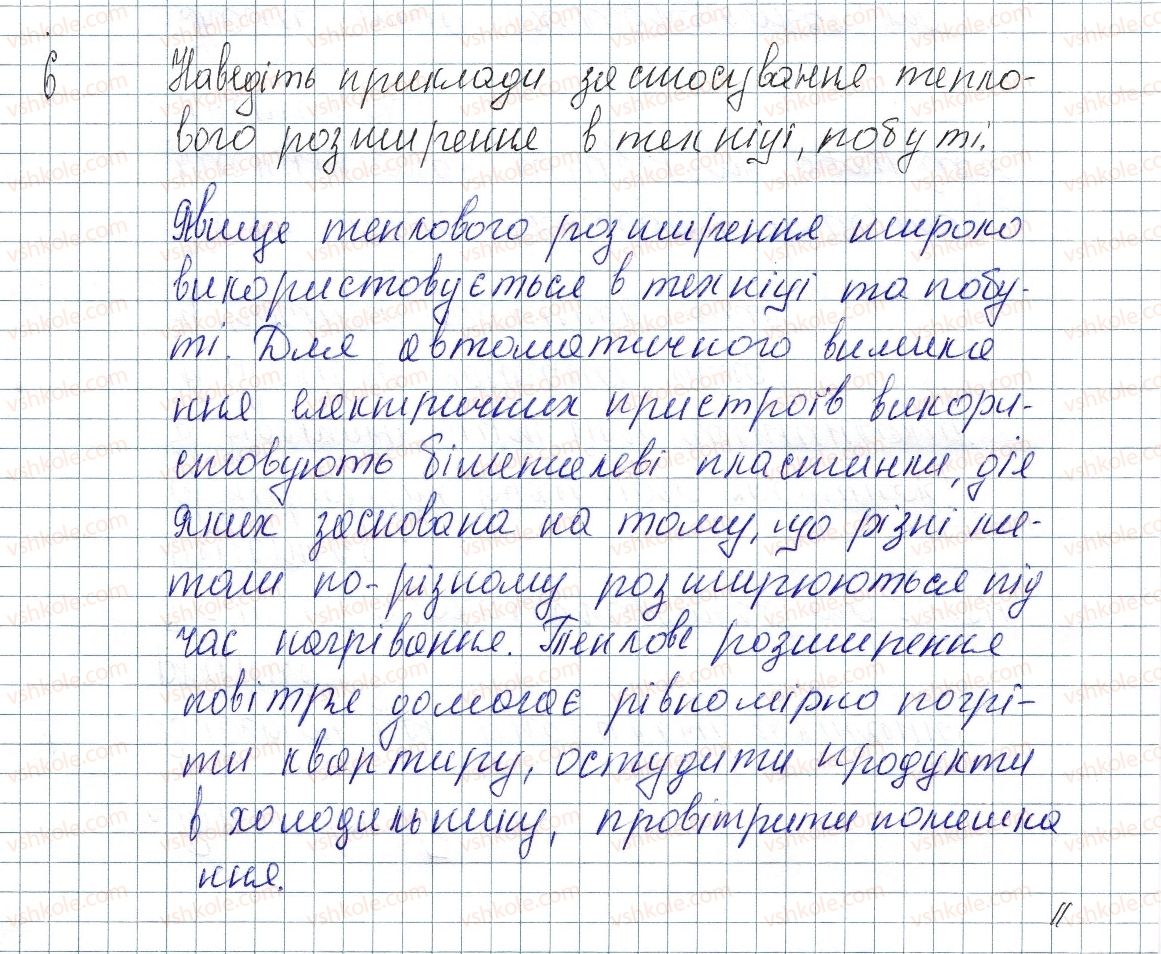 6 Наведіть приклади застосування тепло-
вого розширення в техніці, побуті.
Явище теплового розширення широко
використовується в техніці та побу-
ті. Для автоматичного вимика
ння електричних пристроїв викори-
стовують біметалеві пластинки, дія
яких заснована на тому, що різні ме-
тали по-різному розширюються під
час нагрівання. Теплове розширення
повітря домагає рівномірно погрі-
ти квартиру, остудити продукти
в холодильнику, провітрити помешка
ння.
11